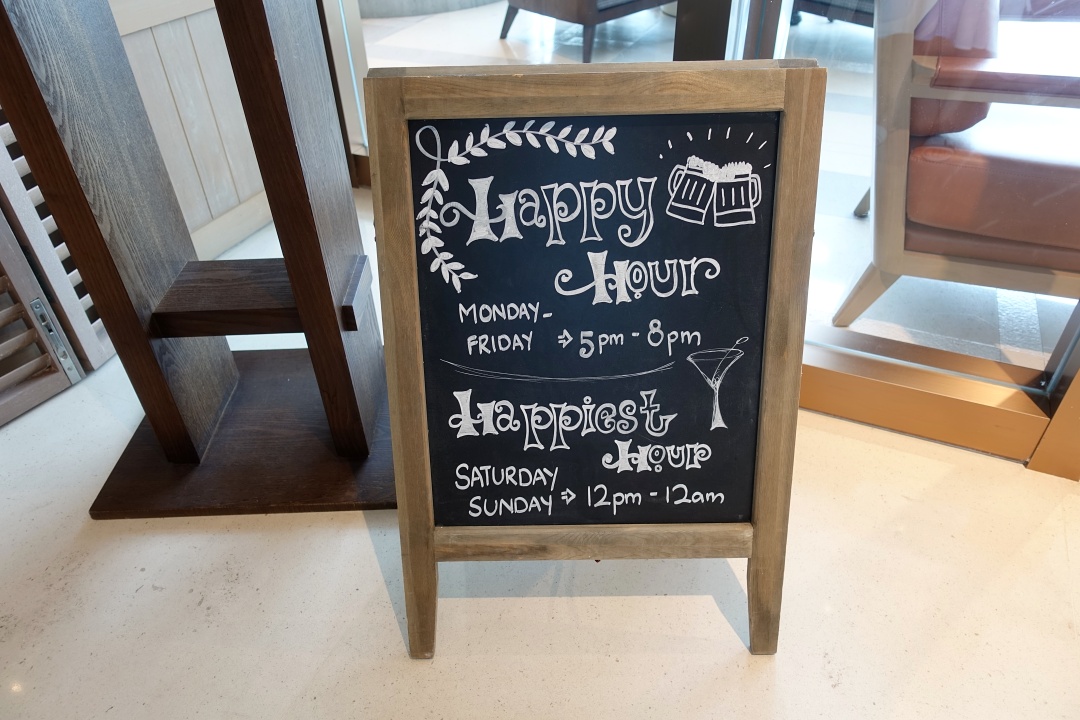 Happy
Hour
MONDAY-
FRIDAY ⇒ 5pm - 8pm
Happiest
Hour
SATURDAY
SUNDAY ⇒ 12pm - 12am